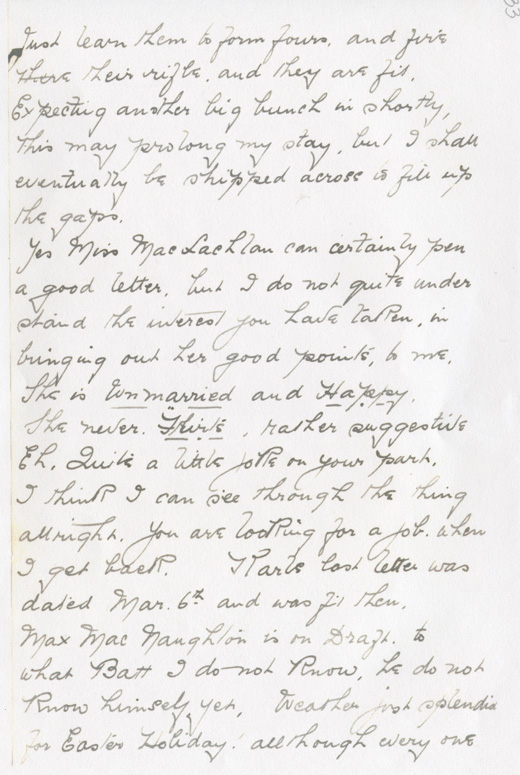 33
Just learn them to form fours, and fire
there their rifle, and they are fit.
Expecting another big bunch in shortly,
this may prolong my stay, but I shall
eventually be shipped across to fill up
the gaps.
Yes Miss MacLachlan can certainly pen
a good letter, but I do not quite under
stand the interest you have taken, in
bringing out her good points, to me.
She is Unmarried and Happy.
She never. , rather suggestive
Eh, Quite a little joke on your part.
I think I can see through the thing
allright. You are looking for a job. when
I get back. last letter was
dated Mar. 6th and was fit then.
Max Mac Naughton is on Draft. to
what Batt I do not know, he do not
know himself yet, Weather just splendid
for Easter Holiday. allthough every one